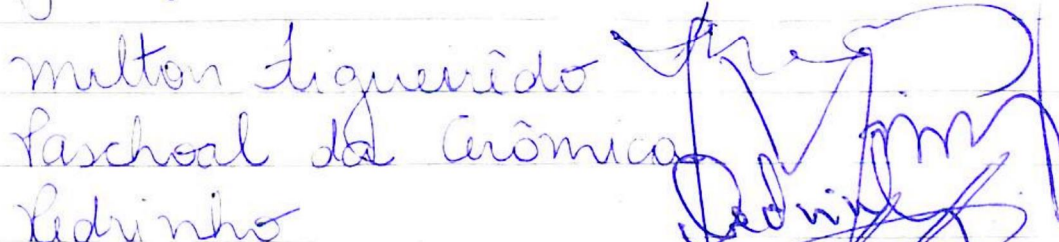 Milton Figueirêdo
Paschoal da Cerômica
Pedrinho Pedrinho